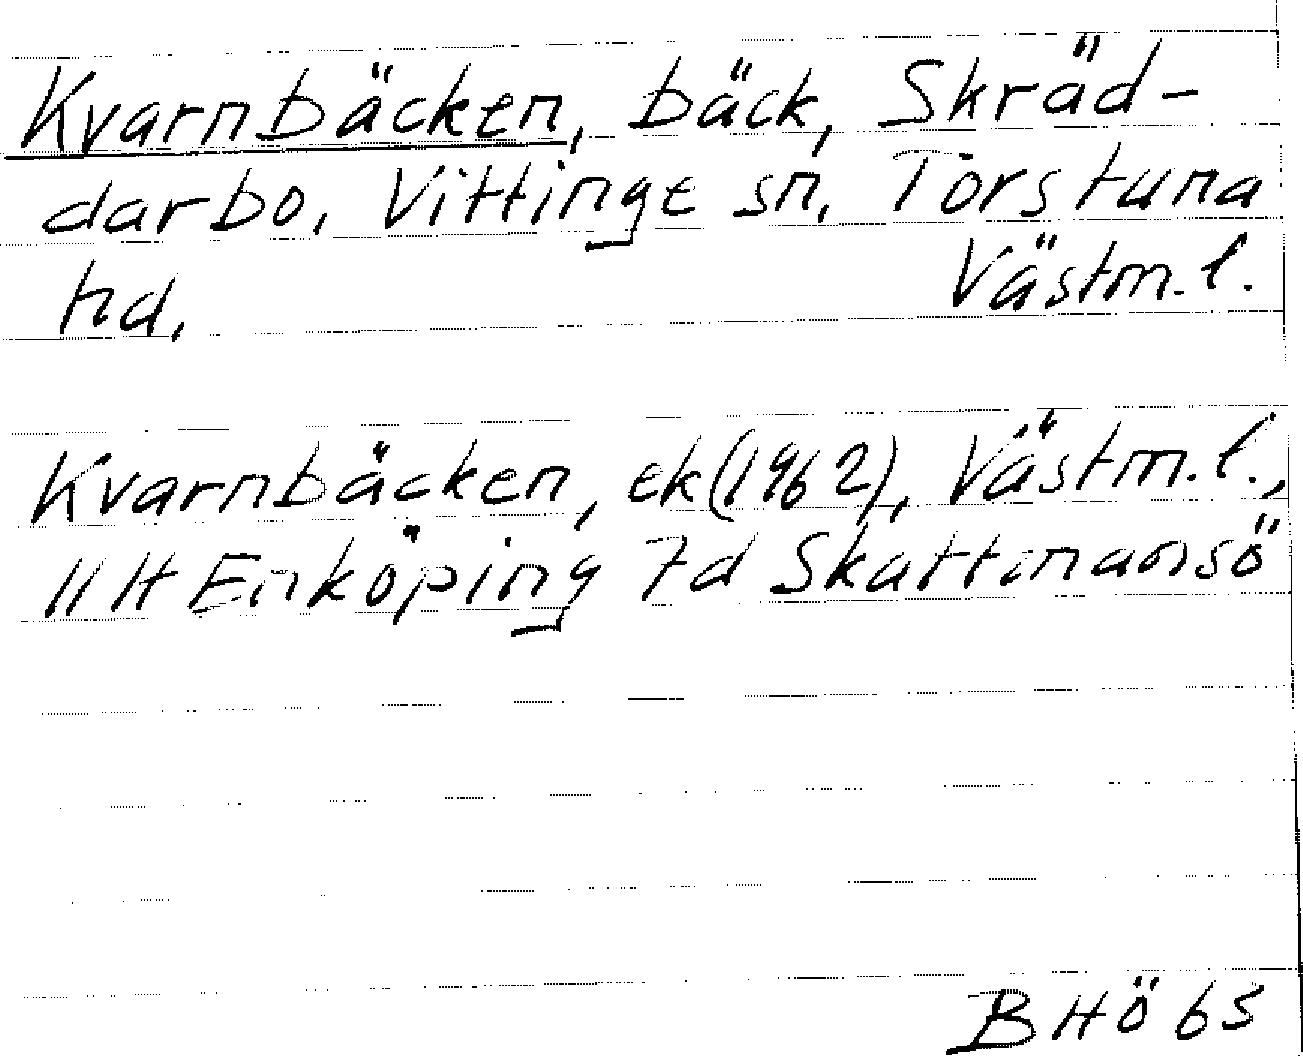 Kvarnbäcken, bäck, Skräd-
darbo, Vittinge sn, Torstuna
hd, Västm.l.
Kvarnbäcken, ek(1962), Västm.l.,
11H Enköping 7d Skattmansö
BHö 63